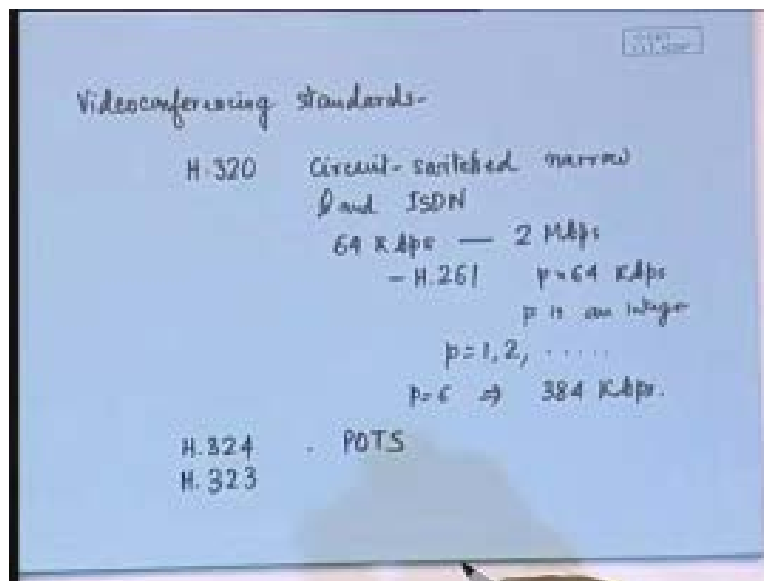 Videoconferencing standards-
H.320 Circuit-switched narrow
band ISDN
64 Kbps — 2 Mbps
- H.261 p×64 Kbps
p is an integer
p=1, 2, .....
p=6 ⇒ 384 Kbps.
H.324 . POTS
H.323